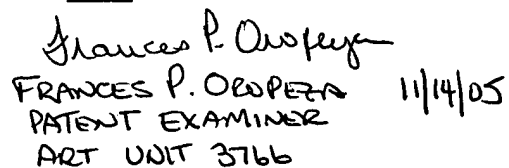 Frances P. Oropeza
FRANCES P. OROPEZA 11/14/05
PATENT EXAMINER
ART UNIT 3766